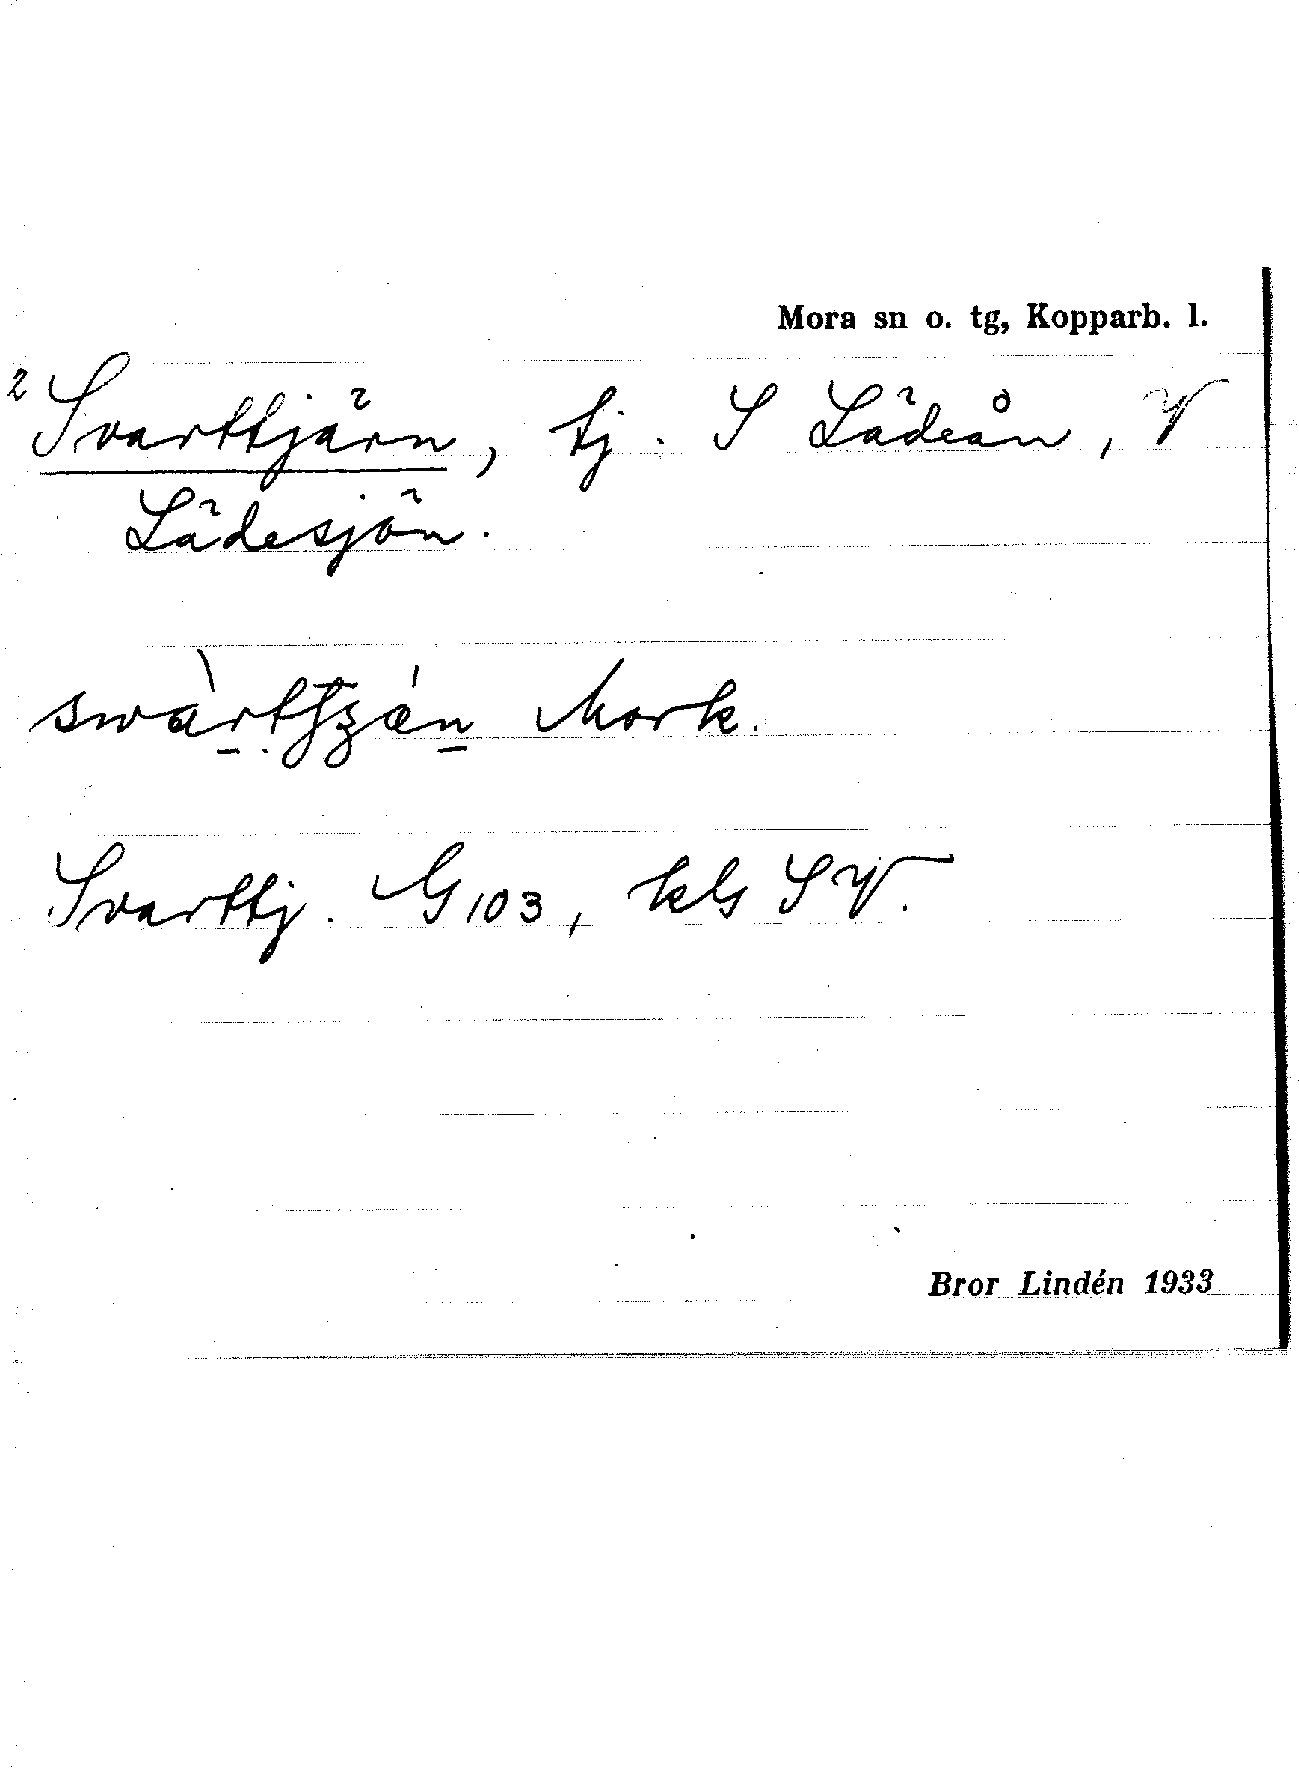 Mora sn o. tg, Kopparb. l.
2 Svarttjärn, tj. S Lädeån, V
Lädesjön.
Mork.
Svarttj. G 103, kls SV.
Bror Lindén 1933